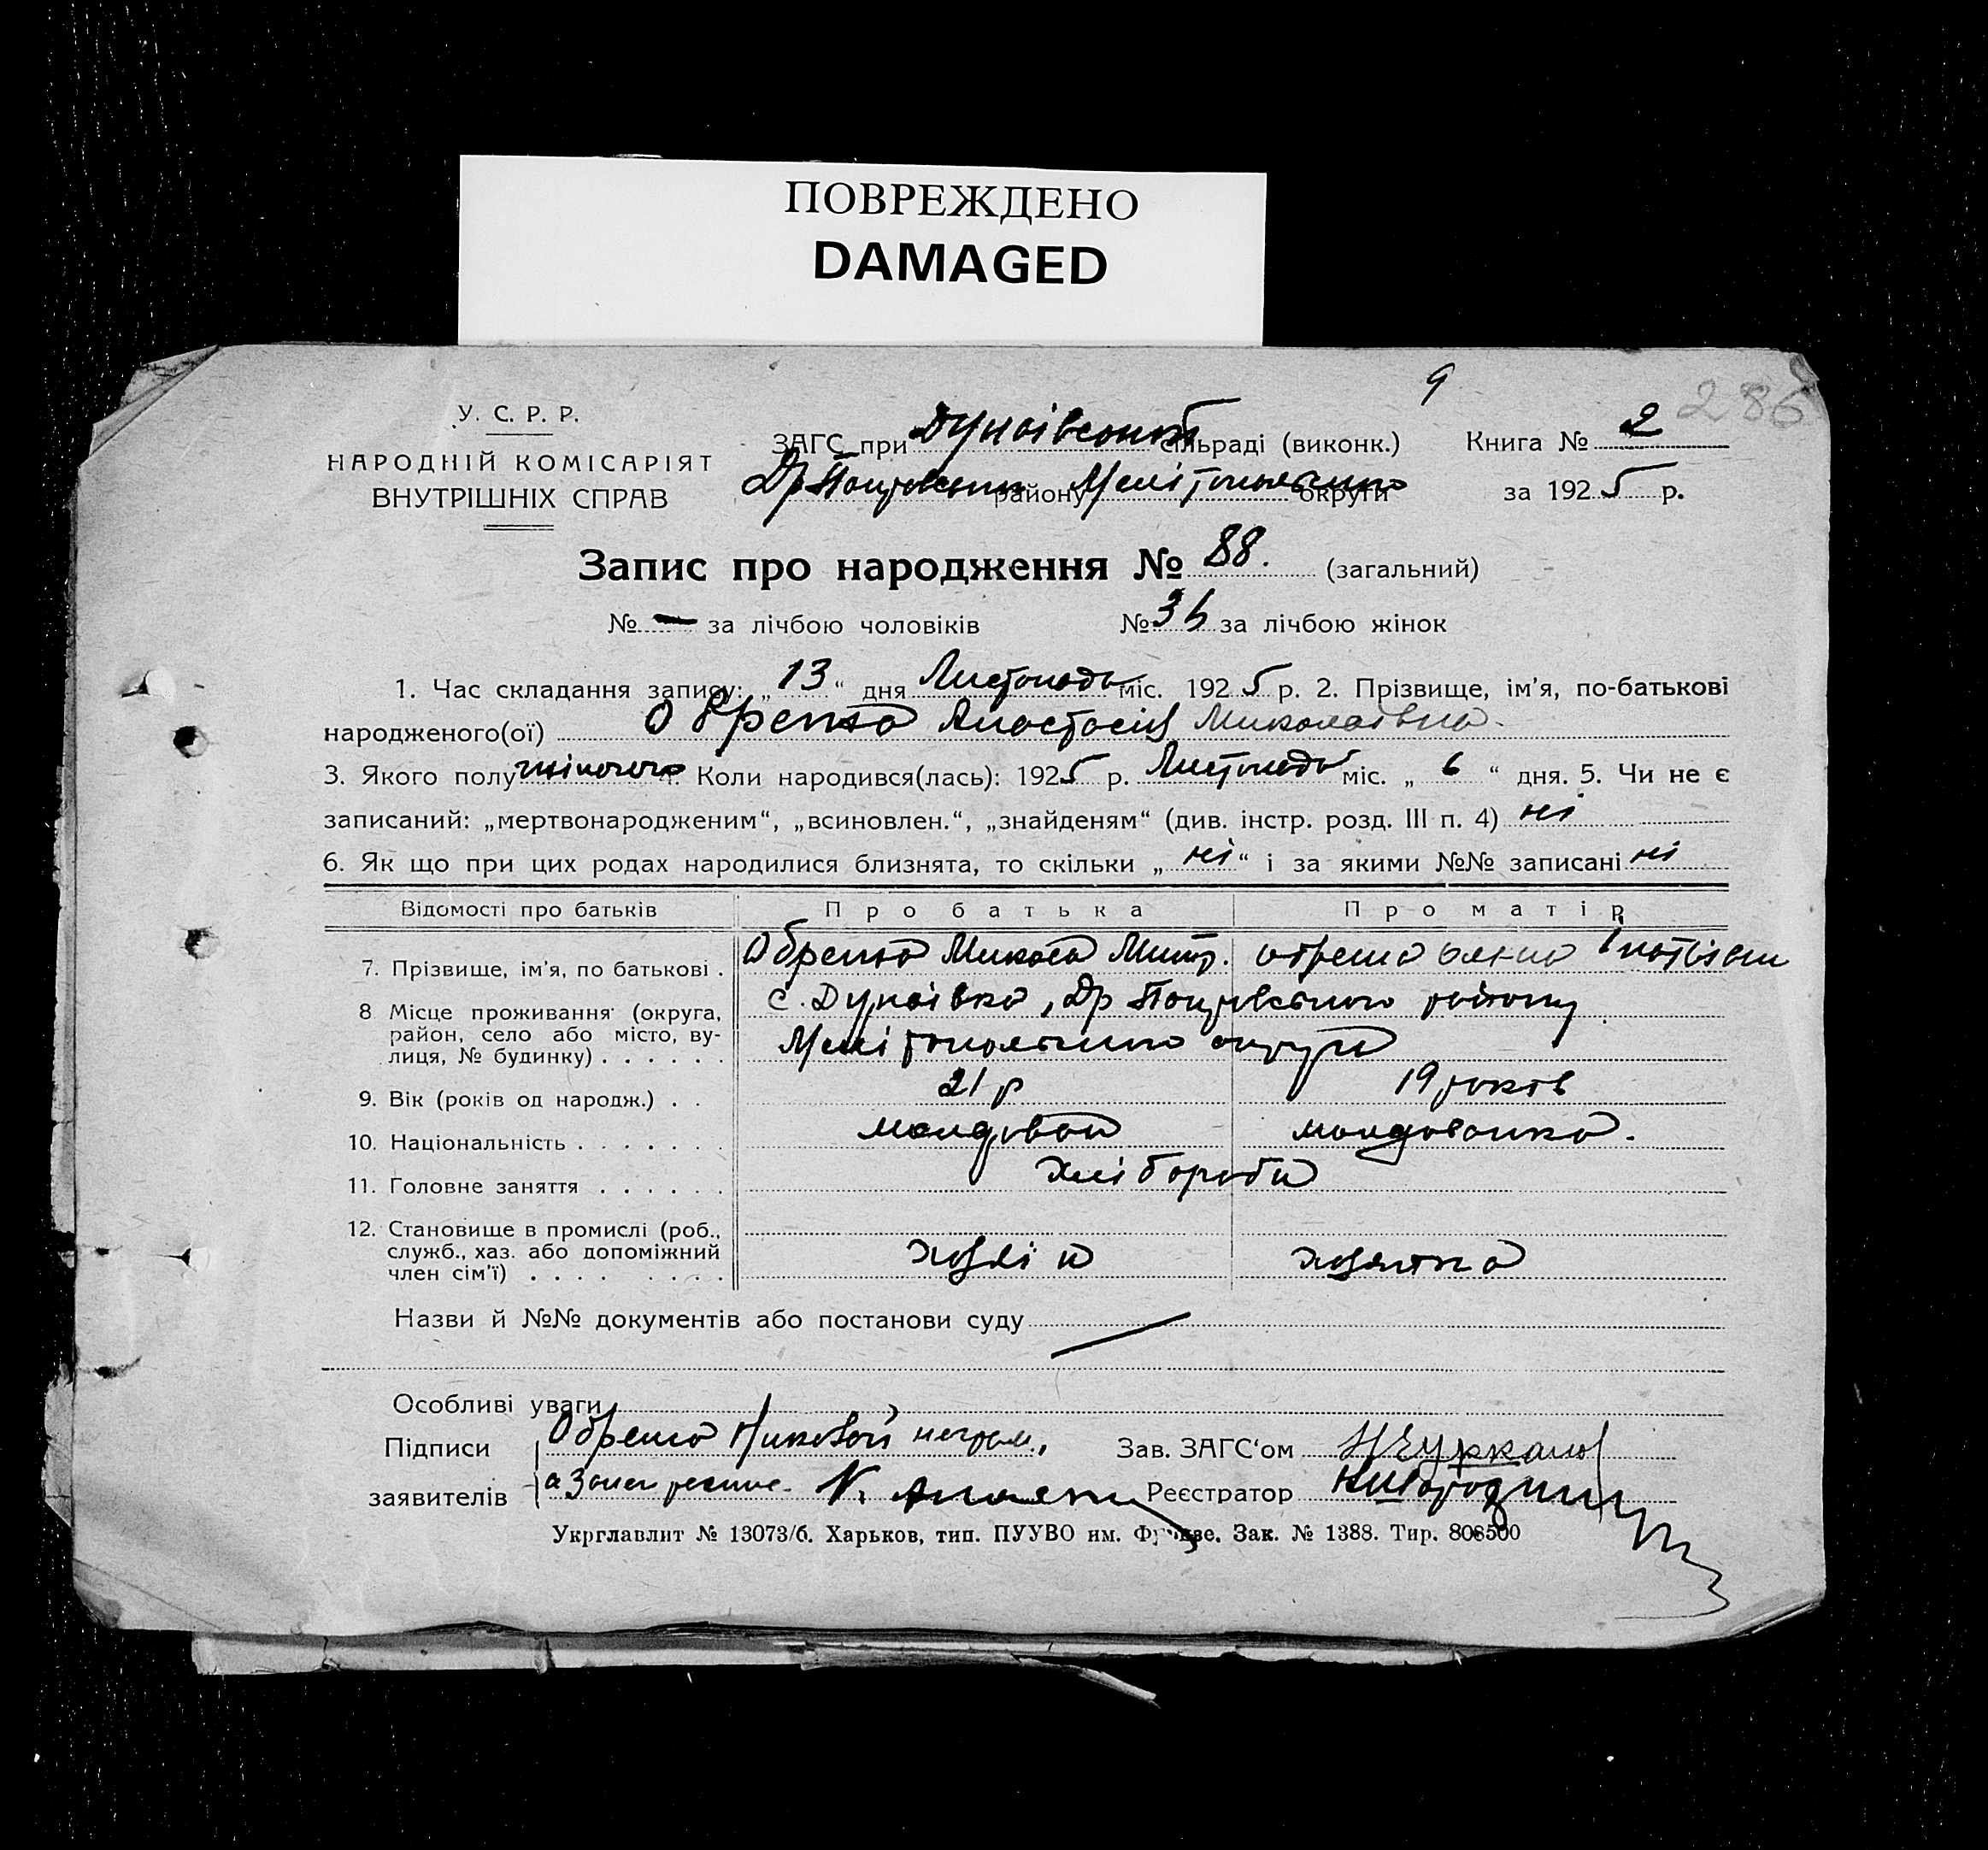 ПОВРЕЖДЕНО
DAMAGED
9
286
У. С. Р. Р.
НАРОДНІЙ КОМІСАРІЯТ
ВНУТРІШНІХ СПРАВ
ЗАГС при Дунаївській сільраді (виконк.) Книга № 2
району Мелітопольської округи за 1925 р.
Запис про народження № 88. (загальний)
№ — за лічбою чоловіків № за лічбою жінок
1. Час складання запису: „13“ дня Листопада міс. 1925 р. 2. Прізвище, ім'я, по-батькові
народженого(ої) Анастасія Миколаївна.
3. Якого полу жіночого 4. Коли народився(лась): 1925 р. Листопада міс. „6“ дня. 5. Чи не є
записаний: „мертвонародженим“, „всиновлен.“, „знайденям“ (див. інстр. розд. III п. 4) ні
6. Як що при цих родах народилися близнята, то скільки „ні“ і за якими №№ записані ні
Відомости про батьків Про батька Про матір
7. Прізвище, ім'я, по батькові . Микола Митр.
8 Місце проживання (округа, с. Дунаївка, району
район, село або місто, ву-
лиця, № будинку) . . . . . . Мелітопольської округи
9. Вік (років од народж.) . . 21 р 19 років
10. Національність . . . . . . . молдован молдованка.
11. Головне заняття . . . . . . хлібороби
12. Становище в промислі (роб.,
служб., хаз. або допоміжний
член сім'ї) . . . . . . . . хазяїн хазяйка
Назви й №№ документів або постанови суду
Особливі уваги
Підписи неграм., Зав. ЗАГС‘ом
заявителів Реєстратор
Укрглавлит № 13073/б. Харьков, тип. ПУУВО им. Фрунзе. Зак. № 1388. Тир. 808500